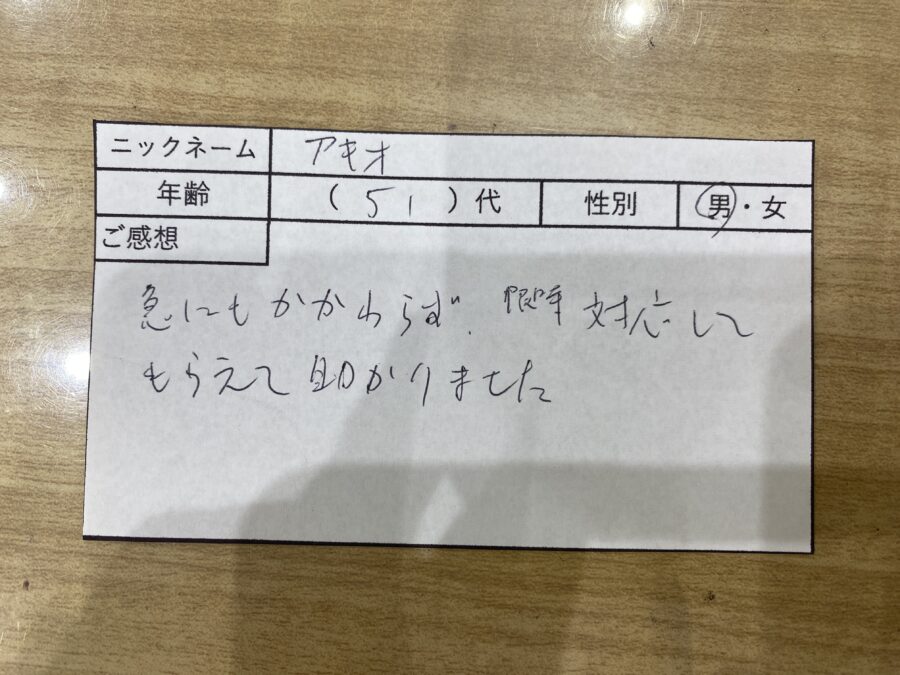 ニックネーム アキオ
年齢 (51)代 性別 男・女
ご感想
急にもかかわらず、対応して
もらえて助かりました